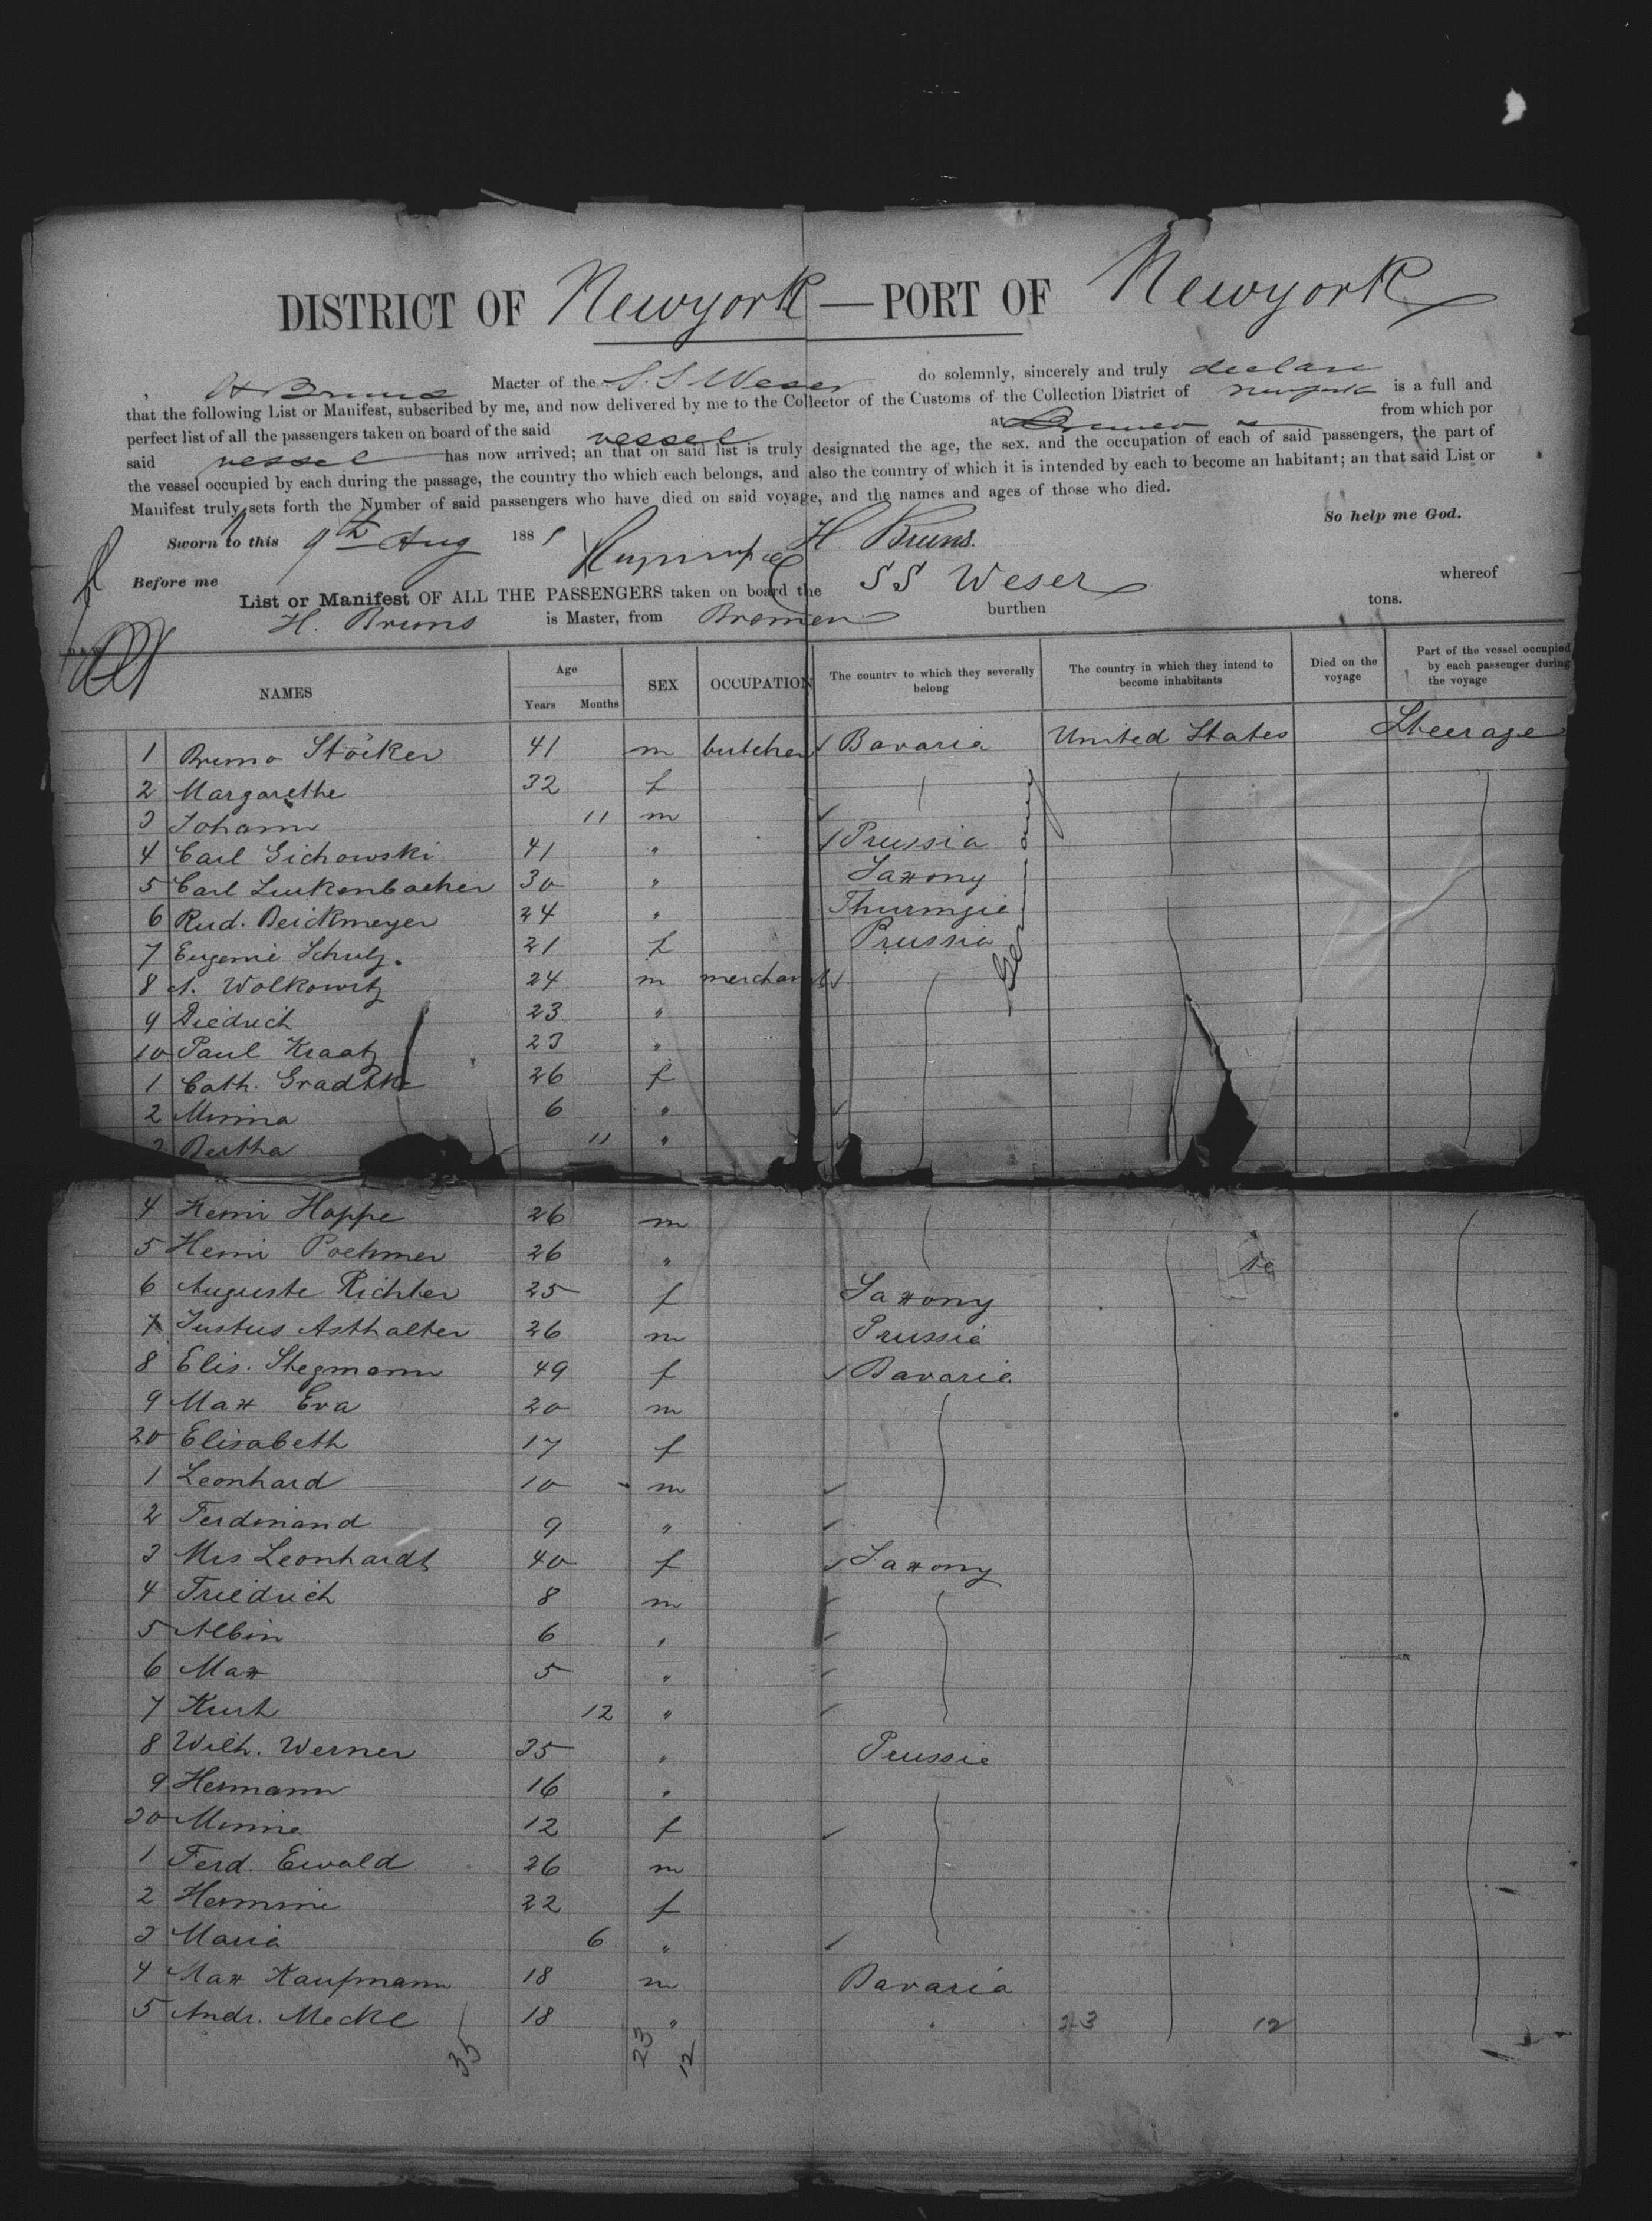 DISTRICT OF Newyork — PORT OF Newyork
H Bruns Macter of the S.S Weser do solemnly, sincerely and truly declare
that the following List or Manifest, subscribed by me, and now delivered by me to the Collector of the Customs of the Collection District of Newyork is a full and
perfect list of all the passengers taken on board of the said vessel at Bremen from which por
said vessel has now arrived; an that on said list is truly designated the age, the sex, and the occupation of each of said passengers, the part of
the vessel occupied by each during the passage, the country tho which each belongs, and also the country of which it is intended by each to become an habitant; an that said List or
Manifest truly sets forth the Number of said passengers who have died on said voyage, and the names and ages of those who died.
So help me God.
Sworn to this 9th Aug 1881 H Bruns.
Before me
List or Manifest OF ALL THE PASSENGERS taken on board the SS Weser whereof
H. Bruns is Master, from Bremen burthen tons.
NAMES Age Years Months SEX OCCUPATION The country to which they severally belong The country in which they intend to become inhabitants Died on the voyage Part of the vessel occupied by each passenger during the voyage
1 Bruno Stöcker 41 m butcher Bavaria United States Steerage
2 Margarethe 32 f
3 Johann 11 m
4 Carl Gichowski 41 " Prussia
5 Carl Luckenbacher 30 " Saxony
6 Rud. Deickmeyer 24 " Thuringie
7 Eugenie Schulz. 21 f Prussia
Germany
8 A. Wolkowitz 24 m merchant
9 Diedrich 23 "
10 Paul Kraatz 23 "
1 Cath. Gradtke 26 f
2 Minna 6 "
3 Bertha 11 "
4 Henri Hoppe 26 m
5 Henri Poehmer 26 "
6 Auguste Richter 25 f Saxony
7 Justus Asthalter 26 m Prussia
8 Elis. Stegmann 49 f Bavaria
9 Max Eva 20 m
20 Elisabeth 17 f
1 Leonhard 10 m
2 Ferdinand 9 "
3 Mrs Leonhardt 40 f Saxony
4 Friedrich 8 m
5 Albin 6 "
6 Max 5 "
7 Kurt 12 "
8 Wilh. Werner 35 " Prussia
9 Hermann 16 "
30 Minna 12 f
1 Ferd. Ewald 26 m
2 Hermine 22 f
3 Maria 6 "
4 Max Kaufmann 18 m Bavaria
5 Andr. Meckl 18 " " 23 12
35 23 12